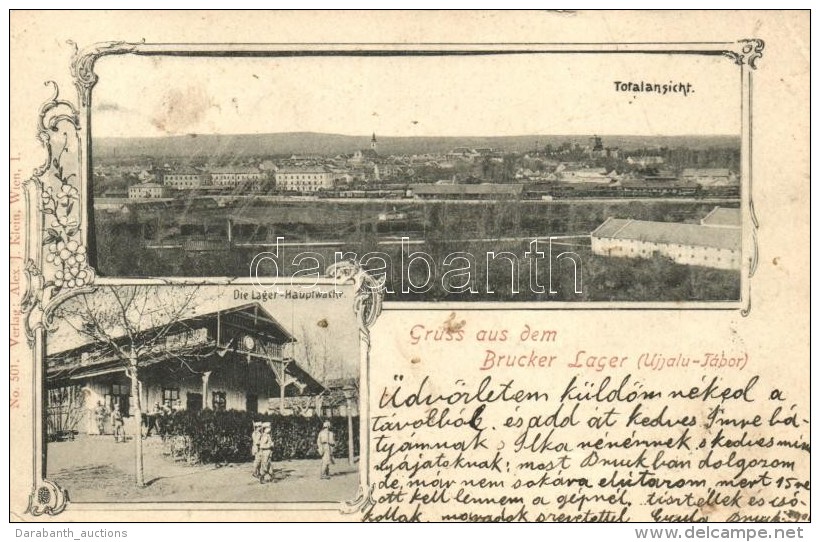 Totalansicht.
Die Lager-Hauptwache
darabanth
No. 301. Verlag Alex. J. Klein, Wien, I.
Gruss aus dem
Brucker Lager (Ujjalu-Tábor)
Üdvözletem küldöm néked a
távolból és add át kedves Imre bá-
tyámnak s Ilka nénémnek s kedves
nyájatoknak; most Bruckban dolgozom
de már nem sokára elútazom, mert 15
ott kell lennem a gépnél, tisztellek és
maradok szeretettel
Darabanth_auctions
http://www.delcampe.net